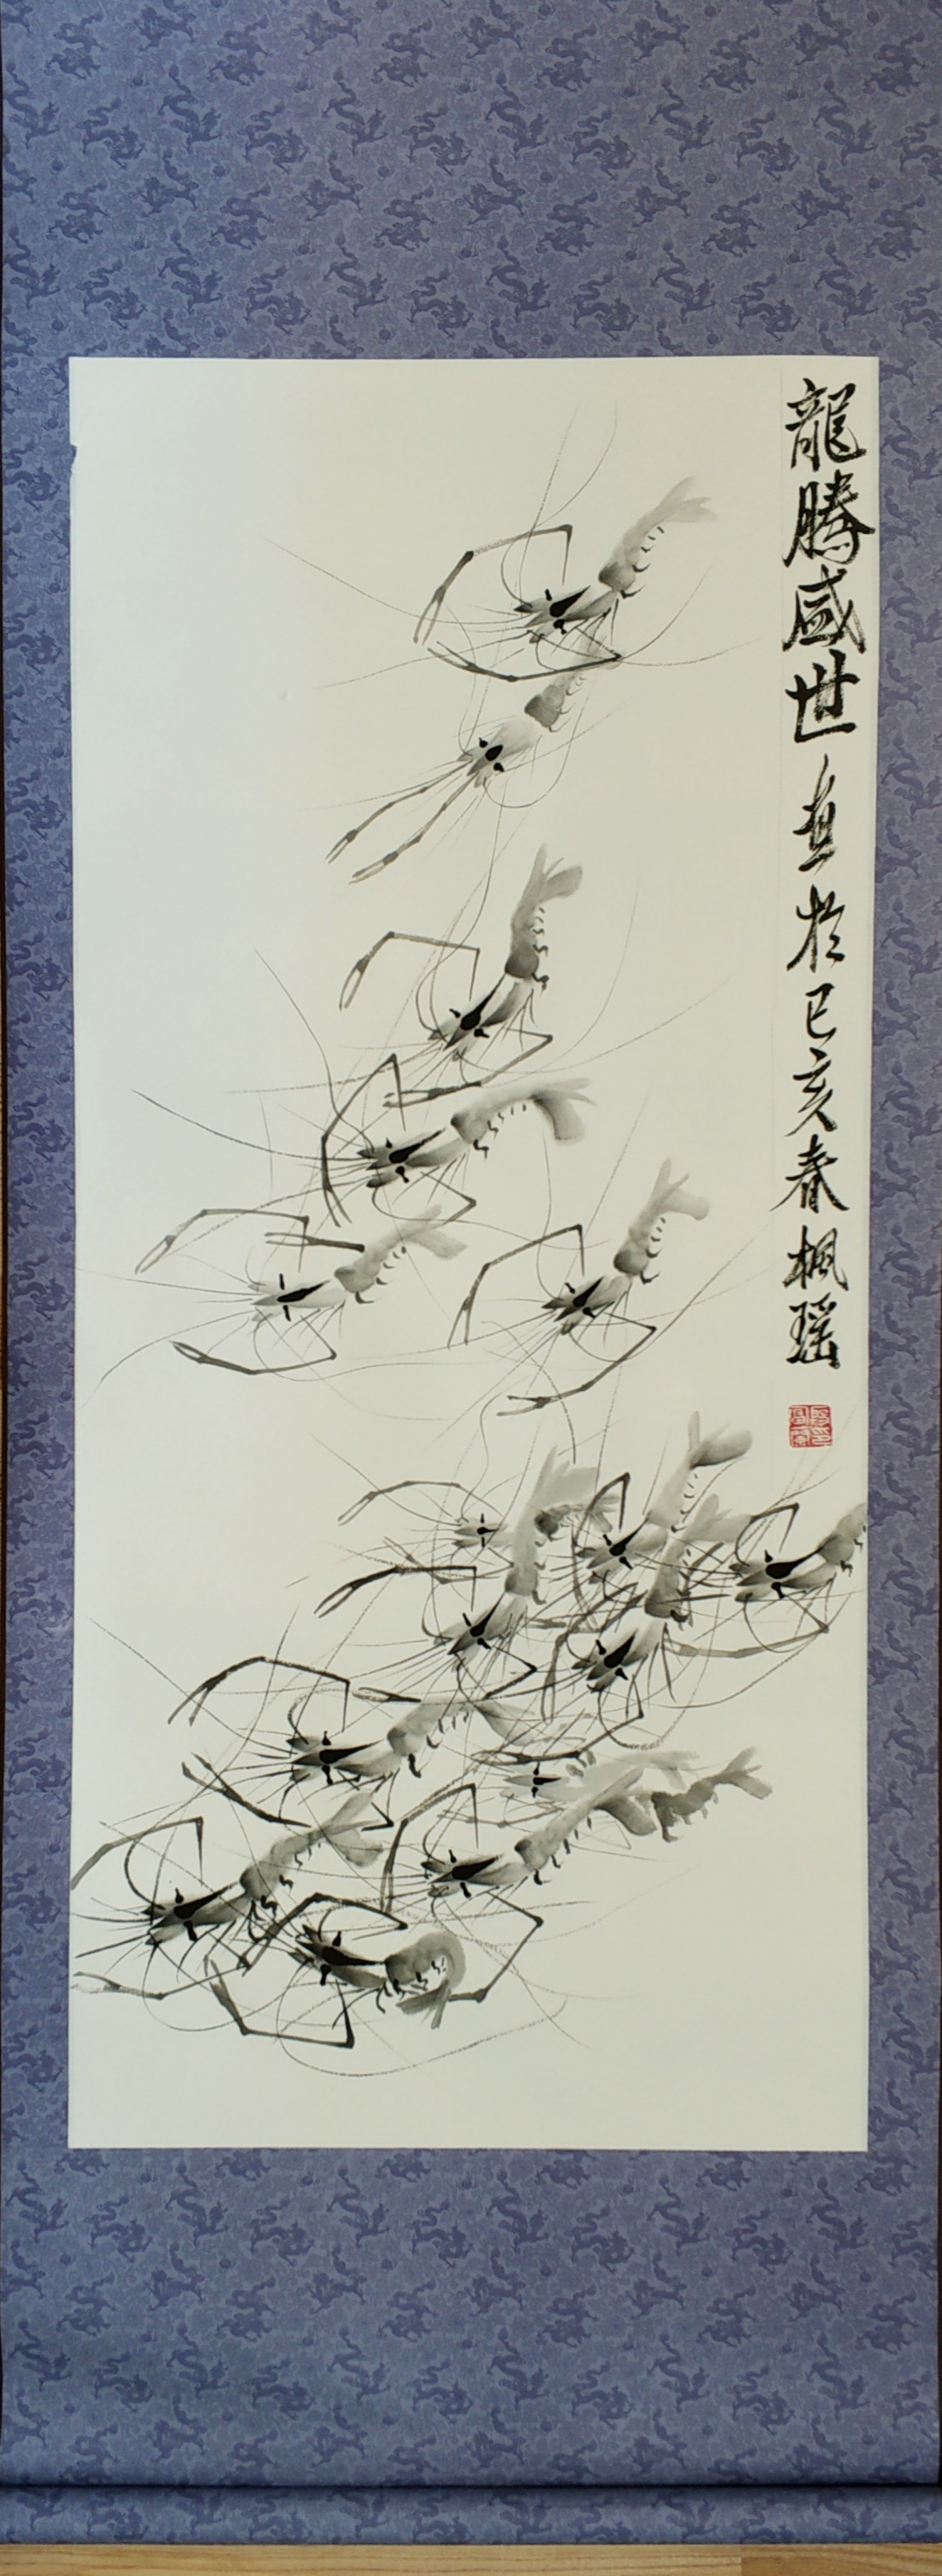 龍騰盛世 画於己亥春 楓瑶